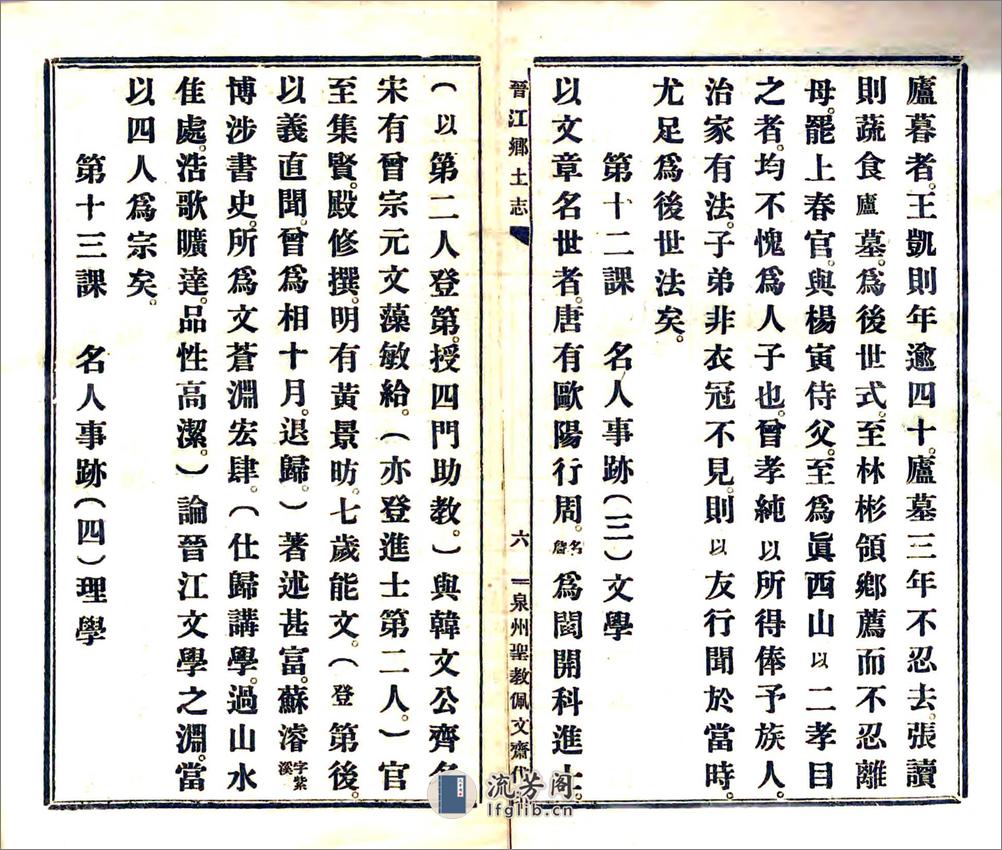 廬暮者。王凱則年逾四十。廬墓三年不忍去。張讀
則蔬食廬墓。爲後世式。至林彬領鄉薦而不忍離
母。罷上春官。與楊寅侍父。至爲眞西山以二孝目
之者。均不愧爲人子也。曾孝純以所得俸予族人。
治家有法。子弟非衣冠不見。則以友行聞於當時。
尤足爲後世法矣。
第十二課 名人事跡(三)文學
以文章名世者。唐有歐陽行周。名詹爲閩開科進士。
晉江鄉土志 六 泉州聖教佩文齋代
(以第二人登第。授四門助教。)與韓文公齊名
宋有曾宗元文藻敏給。(亦登進士第二人。)官
至集賢。殿修撰。明有黃景昉。七歲能文。(登第後。
以義直聞。曾爲相十月。退歸。)著述甚富。蘇濬字紫溪
博涉書史。所爲文蒼淵宏肆。(仕歸講學。過山水
佳處。浩歌曠達。品性高潔。)論晉江文學之淵。當
以四人爲宗矣。
第十三課 名人事跡(四)理學
流芳阁
lfglib.cn